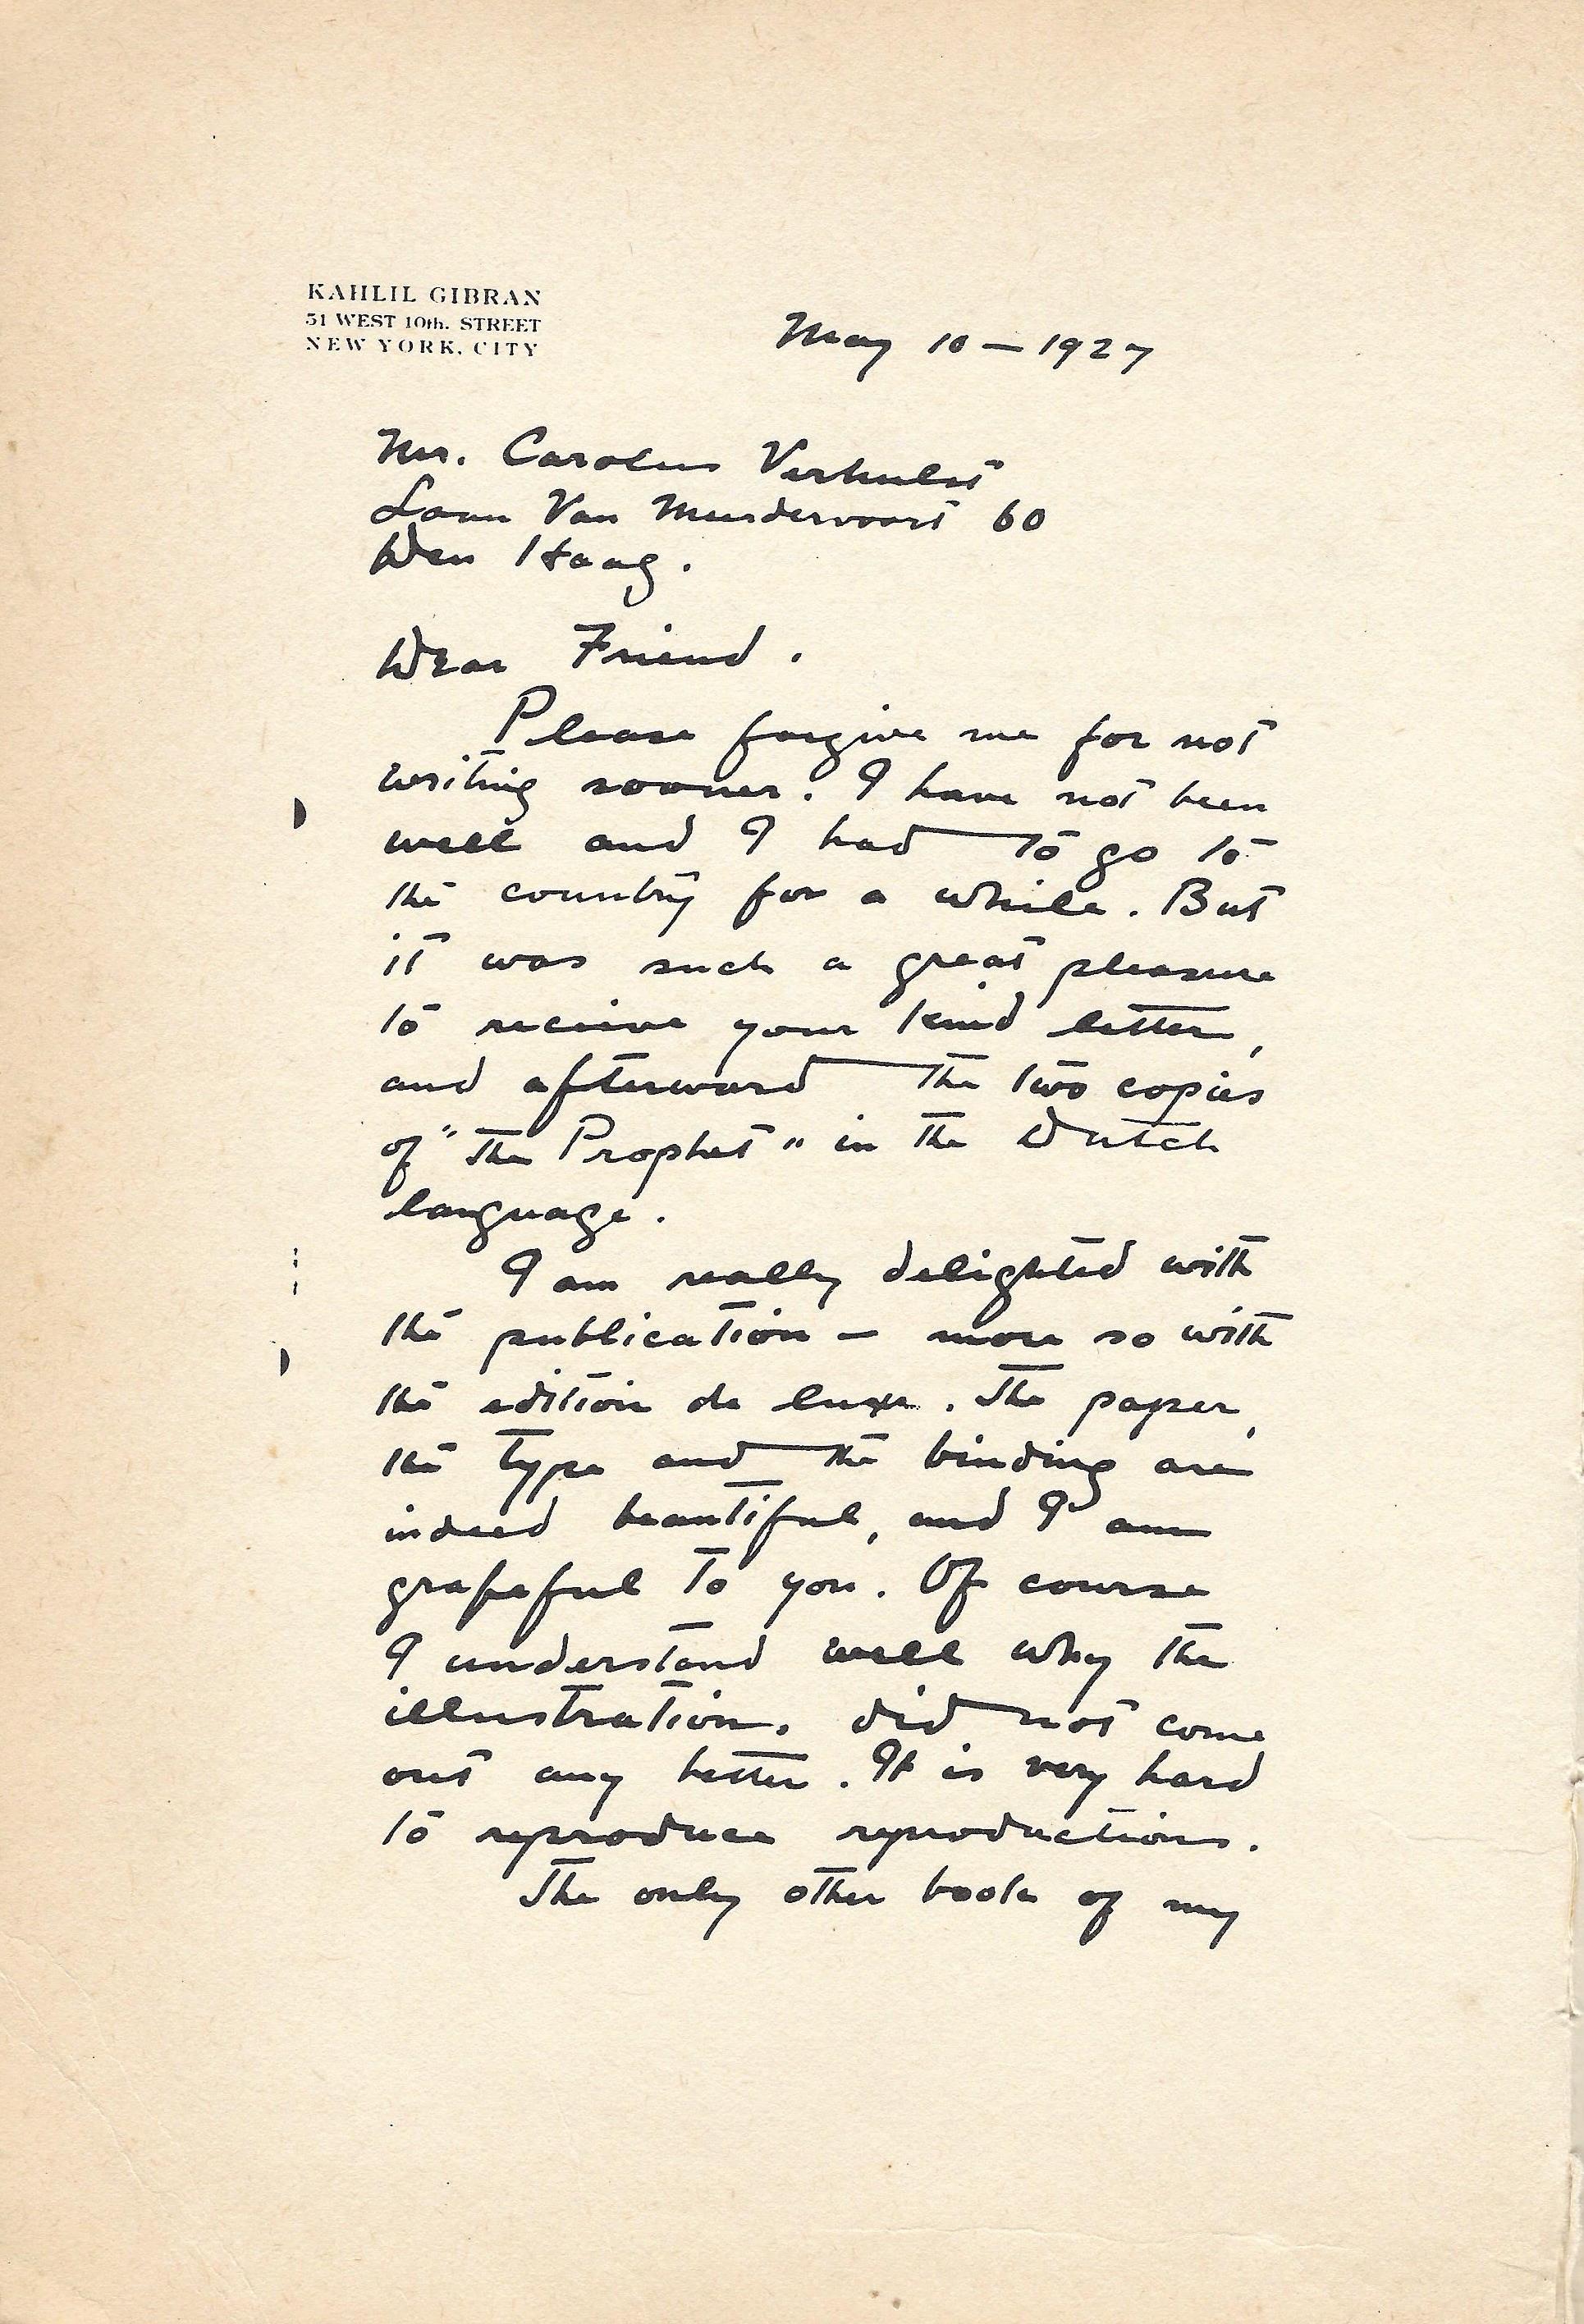 KAHLIL GIBRAN
51 WEST 10th. STREET
NEW YORK, CITY
May 10 — 1927
Mr. Carolus Verhulst
Laan Van Meerdervoort 60
Den Haag.
Dear Friend.
Please forgive me for not
writing sooner. I have not been
well and I had to go to
the country for a while. But
it was such a great pleasure
to recieve your kind letter,
and afterward the two copies
of "The Prophet" in the Dutch
language.
I am really delighted with
the publication — more so with
the edition de luxe. The paper,
the type and the binding are
indeed beautiful, and I am
grateful to you. Of course
I understand well why the
illustrations did not come
out any better. It is very hard
to reproduce reproductions.
The only other book of my